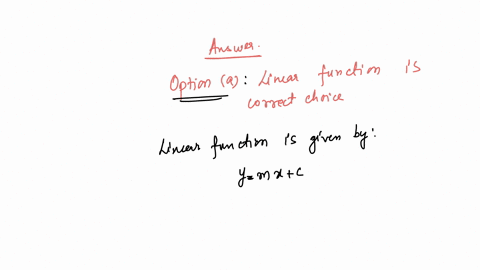 Answer.
Option (a): Linear function is
correct choice
Linear function is given by:
y=mx+c